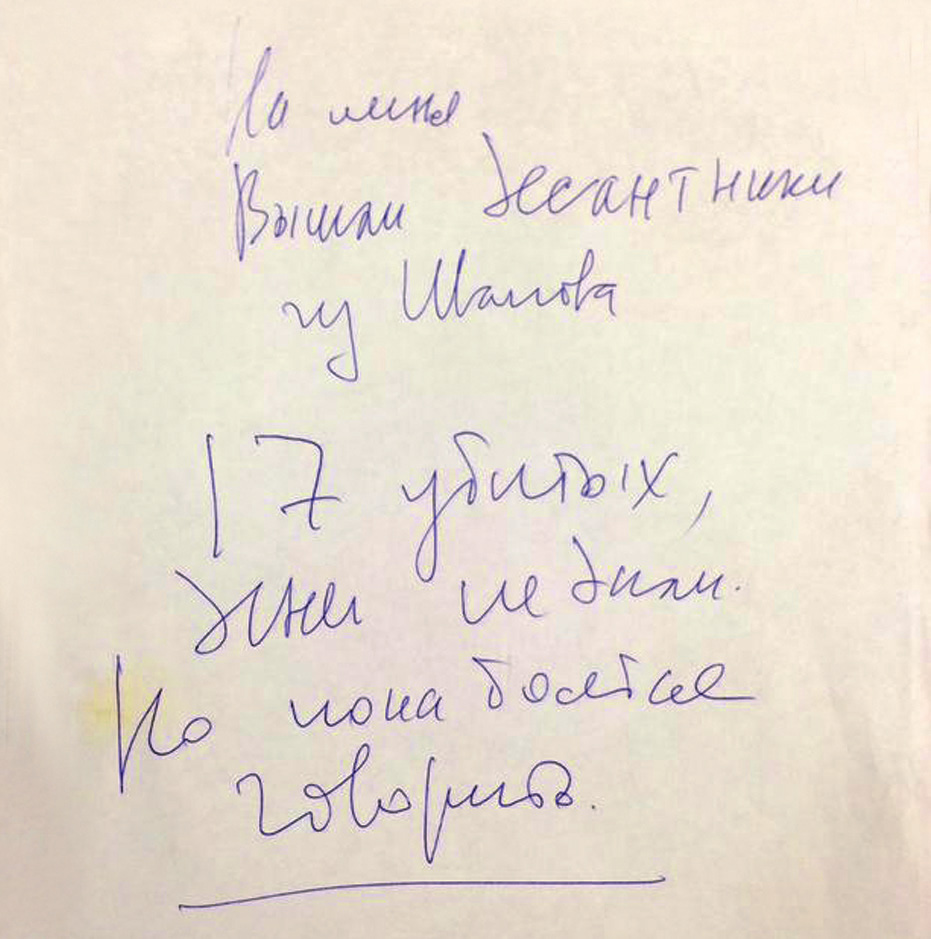 На меня
Вышли десантники
из Иванова
17 убитых,
денег не дали.
Но пока боятся
говорить.